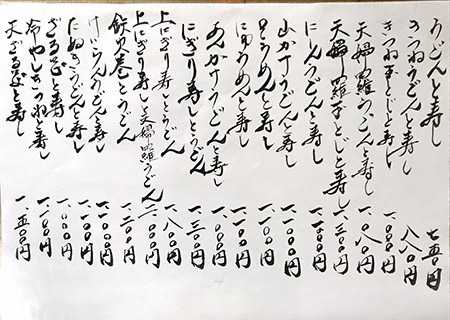 うどんと寿し 七五〇円
きつねうどんと寿し 八八〇円
きつね玉子とじと寿し 一、〇〇〇円
天婦羅うどんと寿し 一、〇八〇円
天婦羅玉子とじと寿し 一、三〇〇円
にしんうどんと寿し 一、一〇〇円
山かけうどんと寿し 一、〇〇〇円
と寿し 一、一〇〇円
にゅうめんと寿し 一、一〇〇円
あんかけうどんと寿し 一、〇〇〇円
にぎり寿しとうどん 一、三〇〇円
上にぎり寿しとうどん 一、八〇〇円
上にぎり寿しと天婦羅うどん 二、〇〇〇円
鉄火巻とうどん 一、二〇〇円
けいらんうどんと寿し 一、一〇〇円
たぬきうどんと寿し 一、〇〇〇円
ざるそばと寿し 一、〇〇〇円
冷やしきつねと寿し 一、一〇〇円
天ざるそばと寿し 一、五〇〇円